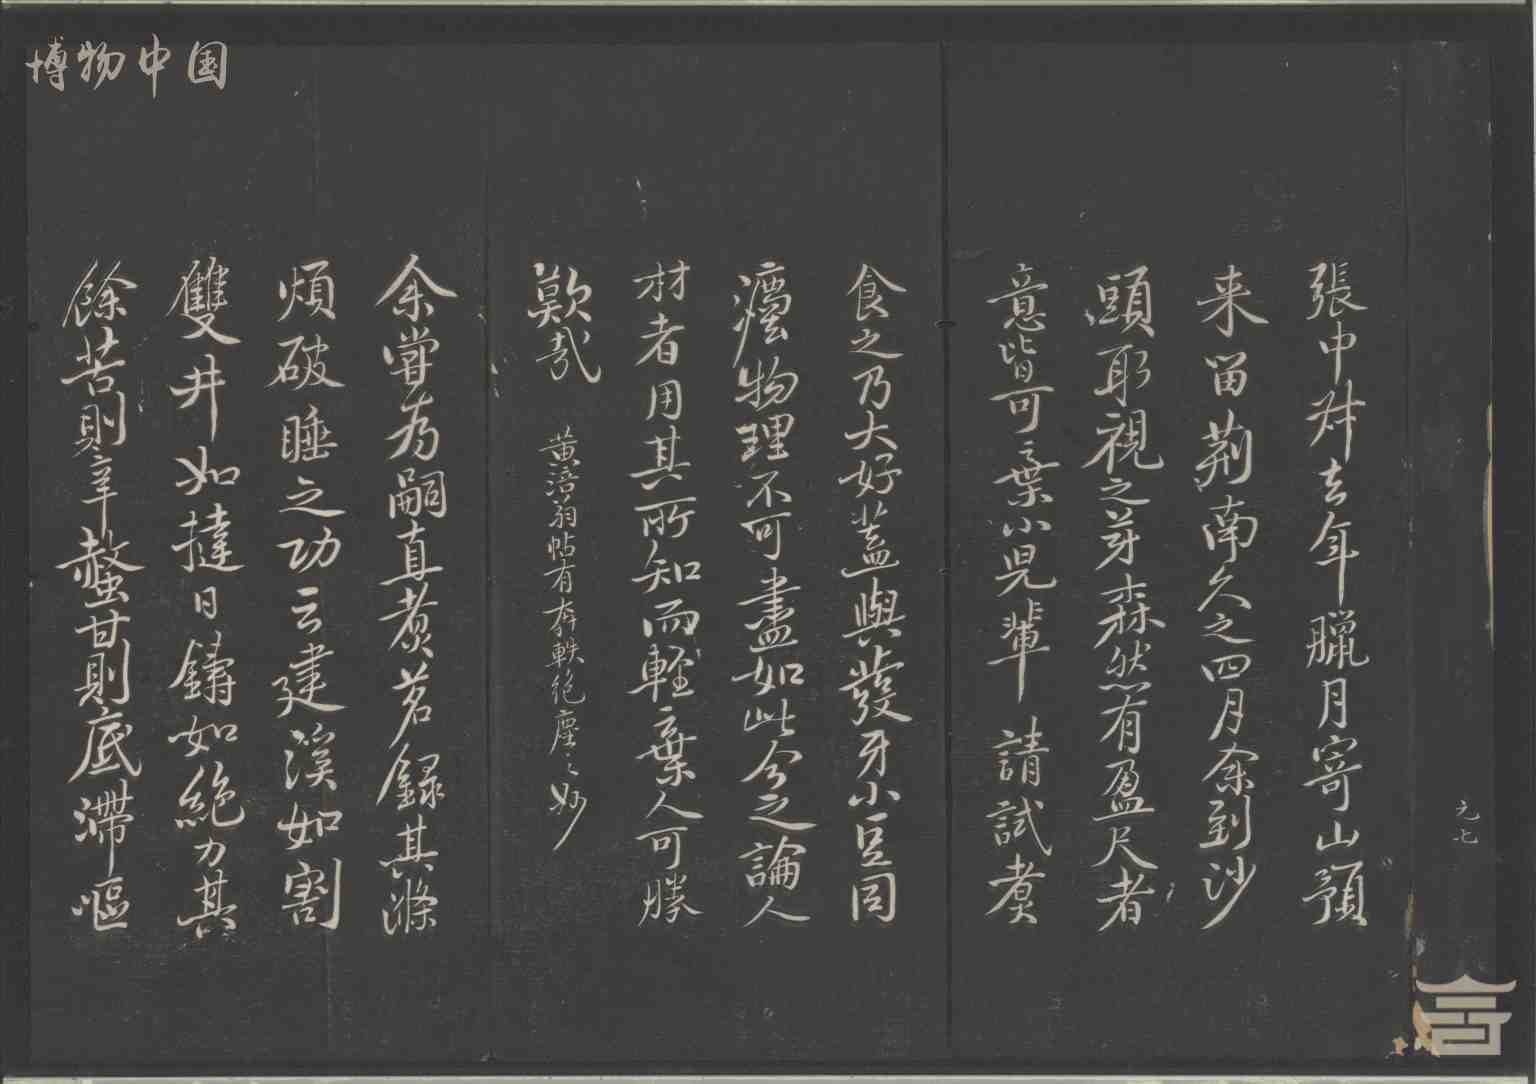 博物中国
元七
張中叔去年臘月寄山預
来留荆南久之四月余到沙
頭取視之芽森然有盈尺者
意皆可棄小兒輩請試煮
食之乃大好蓋與發牙小豆同
法物理不可盡如此今之論人
材者用其所知而輕棄人可勝
歎哉
黄涪翁帖有奔軼絶塵之妙
余嘗為嗣直煮茗録其滌
煩破睡之功云建溪如割
雙井如撻日鑄如絶力其
餘苦則辛螫甘則底滯嘔